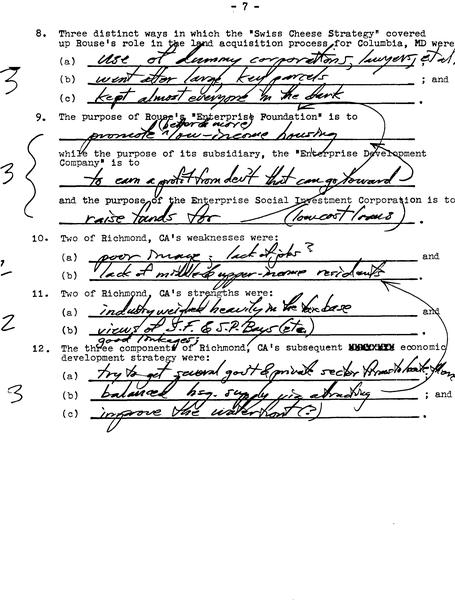 - 7 -
8. Three distinct ways in which the "Swiss Cheese Strategy" covered
up Rouse's role in the land acquisition process for Columbia, MD were
(a) use of dummy corporations, lawyers, et al.
(b) went after large, key parcels ; and
3
(c) kept almost everyone in the dark .
9. The purpose of Rouse's "Enterprise Foundation" is to
(better & more)
promote low-income housing
while the purpose of its subsidiary, the "Enterprise Development
Company" is to
3
to earn a profit from dev't that can go toward
and the purpose of the Enterprise Social Investment Corporation is to
raise funds for (low cost loans) .
10. Two of Richmond, CA's weaknesses were:
(a) poor image; lack of jobs? and
(b) lack of middle & upper-income residents .
11. Two of Richmond, CA's strengths were:
(a) industry weighed heavily in the tax base and
2
(b) views of S.F. & S.P. Bays (etc.) .
good linkages;
12. The three components of Richmond, CA's subsequent economic
development strategy were:
(a) try to get several govt & private sector
3
(b) balanced hsg. supply via attracting ; and
(c) improve the waterfront (?) .